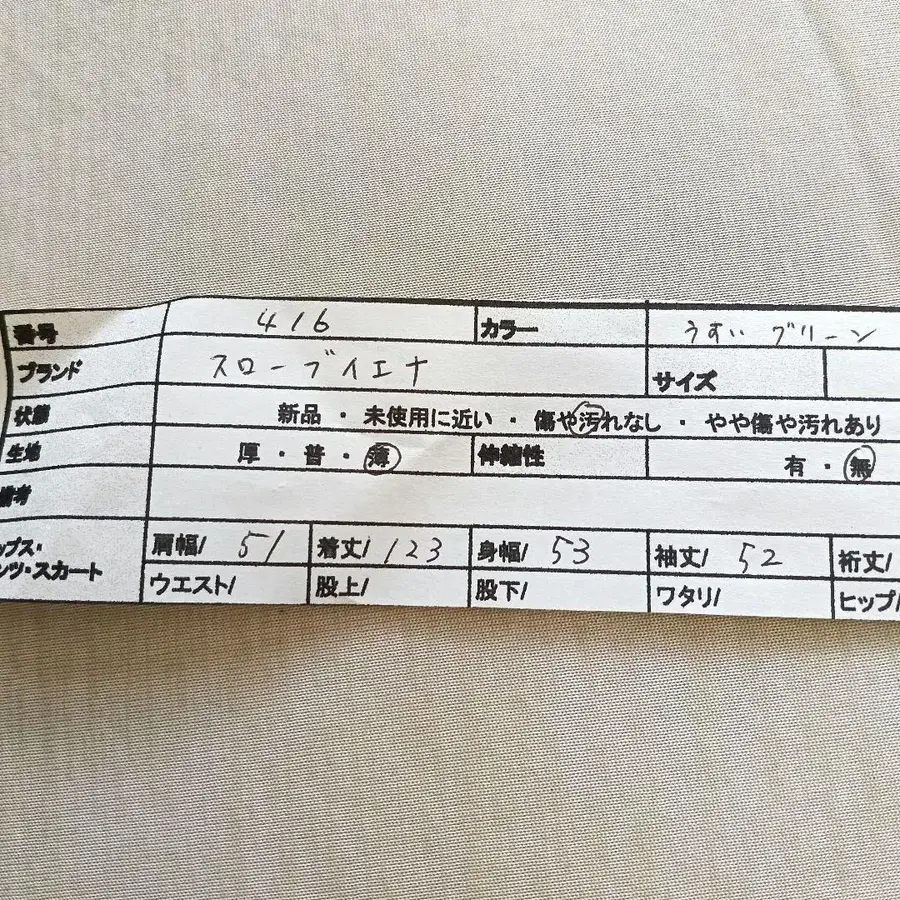 番号 416 カラー うすい グリーン
ブランド スローブイエナ サイズ
状態 新品 ・ 未使用に近い ・ 傷や汚れなし ・ やや傷や汚れあり
生地 厚 ・ 普 ・ 薄 伸縮性 有 ・ 無
備考
ップス・ 肩幅/ 51 着丈/ 123 身幅/ 53 袖丈/ 52 裄丈/
ンツ・スカート ウエスト/ 股上/ 股下/ ワタリ/ ヒップ/